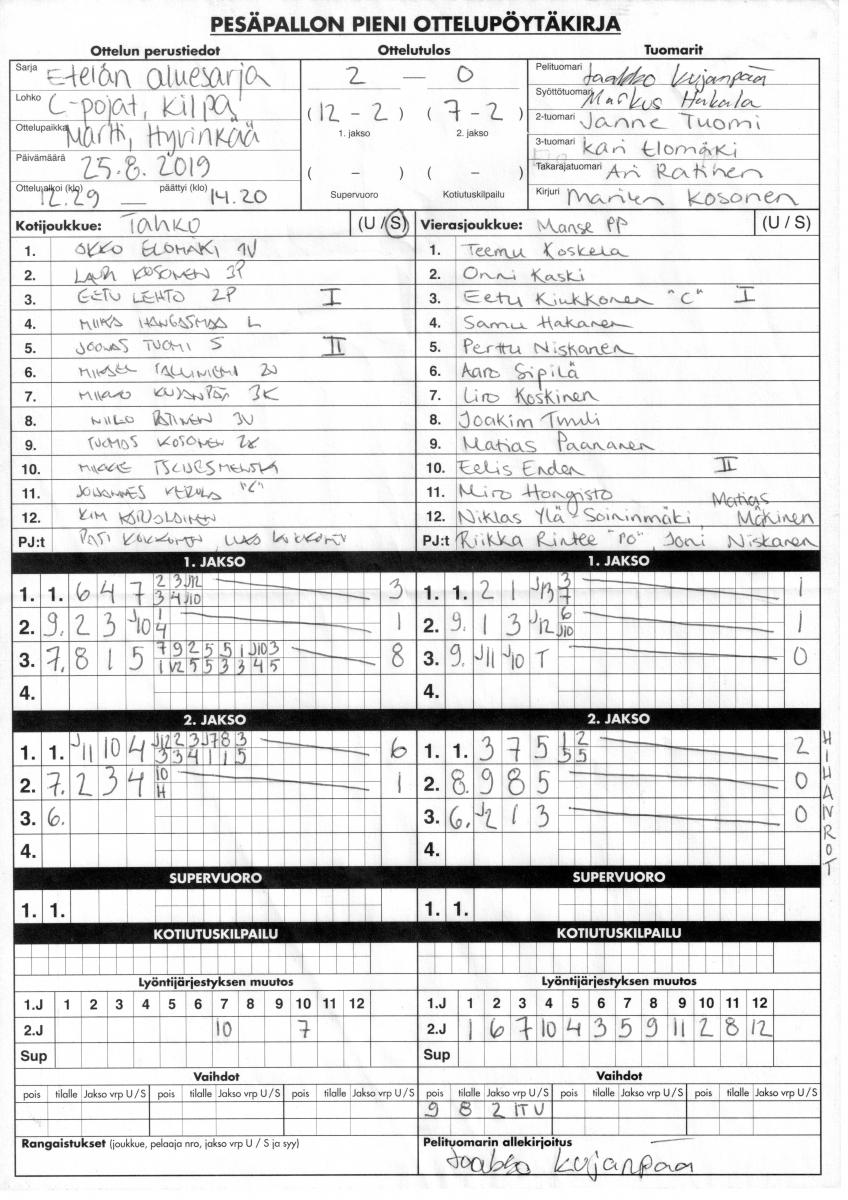 PESÄPALLON PIENI OTTELUPÖYTÄKIRJA
Ottelun perustiedot
Ottelutulos
Tuomarit
Sarja Etelän aluesarja
Lohko C-pojat, kilpa
Ottelupaikka Martti, Hyvinkää
Päivämäärä 25.8.2019
Ottelu alkoi (klo) 12.29 — päättyi (klo) 14.20
2 — 0
(12 - 2) (7 - 2)
1. jakso 2. jakso
( - ) ( - )
Supervuoro Kotiutuskilpailu
Pelituomari Jaakko Kujanpää
Syöttötuomari Markus Hakala
2-tuomari Janne Tuomi
3-tuomari Kari Elomäki
Takarajatuomari Ari Ratinen
Kirjuri Mariken Kosonen
Kotijoukkue: Tahko (U / S)
1. OKKO ELOMÄKI 1V
2. LAURI KOSONEN 3P
3. EETU LEHTO 2P I
4. MIIKA HANGASMAA L
5. JOONAS TUOMI S II
6. MIKAEL TALLINIEMI 2V
7. MIKKO KUJANPÄÄ 3K
8. NIILO RATINEN 3V
9. TUOMAS KOSONEN 2K
10. MIKKE
11. JOHANNES "C"
12. KIM
PJ:t PASI KOKKONEN,
Vierasjoukkue: Manse PP (U / S)
1. Teemu Koskela
2. Onni Kaski
3. Eetu Kiukkonen "C" I
4. Samu Hakanen
5. Perttu Niskanen
6. Aaro Sipilä
7. Liro Koskinen
8. Joakim Tuuli
9. Matias Paananen
10. Eelis Enden II
11. Miro Hongisto Matias
12. Niklas Ylä-Soininmäki, Mäkinen
PJ:t Riikka Rintee "PO", Joni Niskanen
1. JAKSO
1. 1. 6 4 7 2 3 J12 3
3 4 J10
2. 9. 2 3 J10 1 1
4
3. 7. 8 1 5 7 9 2 5 5 1 J10 3 8
1 12 5 5 3 3 4 5
4.
1. JAKSO
1. 1. 2 1 J13 3 1
7
2. 9. 1 3 J12 6 1
J10
3. 9. J11 J10 T 0
4.
2. JAKSO
1. 1. J11 10 4 J12 2 3 J7 8 3 6
3 3 4 1 1 5
2. 7. 2 3 4 10 1
H
3. 6.
4.
2. JAKSO
1. 1. 3 7 5 1 2 2
5 5
2. 8. 9 8 5 0
3. 6. J2 1 3 0
4.
HIHANROT
SUPERVUORO
1. 1.
SUPERVUORO
1. 1.
KOTIUTUSKILPAILU
KOTIUTUSKILPAILU
Lyöntijärjestyksen muutos
1.J 1 2 3 4 5 6 7 8 9 10 11 12
2.J 10 7
Sup
Lyöntijärjestyksen muutos
1.J 1 2 3 4 5 6 7 8 9 10 11 12
2.J 1 6 7 10 4 3 5 9 11 2 8 12
Sup
Vaihdot
pois tilalle Jakso vrp U/S pois tilalle Jakso vrp U/S pois tilalle Jakso vrp U/S
Vaihdot
pois tilalle Jakso vrp U/S pois tilalle Jakso vrp U/S pois tilalle Jakso vrp U/S
9 8 2 IT U
Rangaistukset (joukkue, pelaaja nro, jakso vrp U / S ja syy)
Pelituomarin allekirjoitus
Jaakko Kujanpää